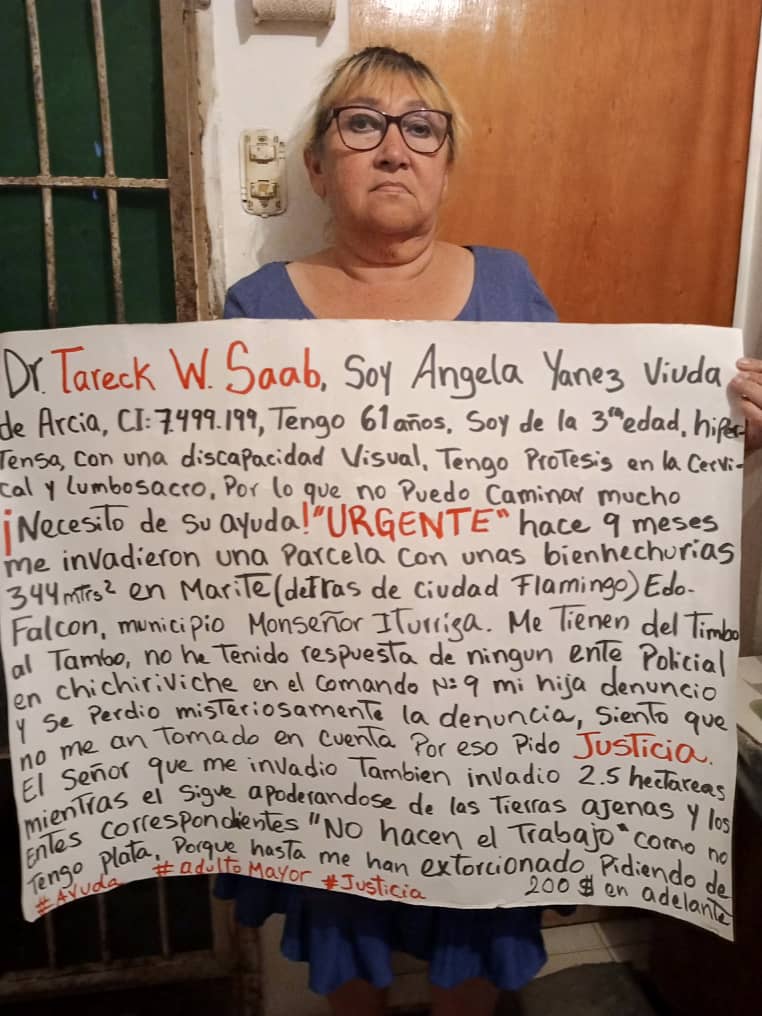 Dr. Tareck W. Saab, Soy Angela Yanez Viuda
de Arcia, CI: 7.499.199, Tengo 61 años, Soy de la 3ra edad, hiper-
Tensa, con una discapacidad Visual, Tengo Protesis en la Cervi-
cal y Lumbosacro, Por lo que no Puedo Caminar mucho
¡Necesito de su ayuda! "URGENTE" hace 9 meses
me invadieron una Parcela con unas bienhechurias
344 mtrs² en Marite (detras de Ciudad Flamingo) Edo.
Falcon, municipio Monseñor Iturriza. Me Tienen del Timbo
al Tambo, no he Tenido respuesta de ningun ente Policial
en chichiriviche en el comando Nº 9 mi hija denuncio
y se Perdio misteriosamente la denuncia, siento que
no me an Tomado en cuenta Por eso Pido Justicia.
El Señor que me invadio Tambien invadio 2.5 hectareas
mientras el Sigue apoderandose de las Tierras ajenas y los
Entes correspondientes "NO hacen el Trabajo" como no
Tengo plata, Porque hasta me han extorcionado Pidiendo de
200 $ en adelante
#Ayuda #adulto Mayor #Justicia